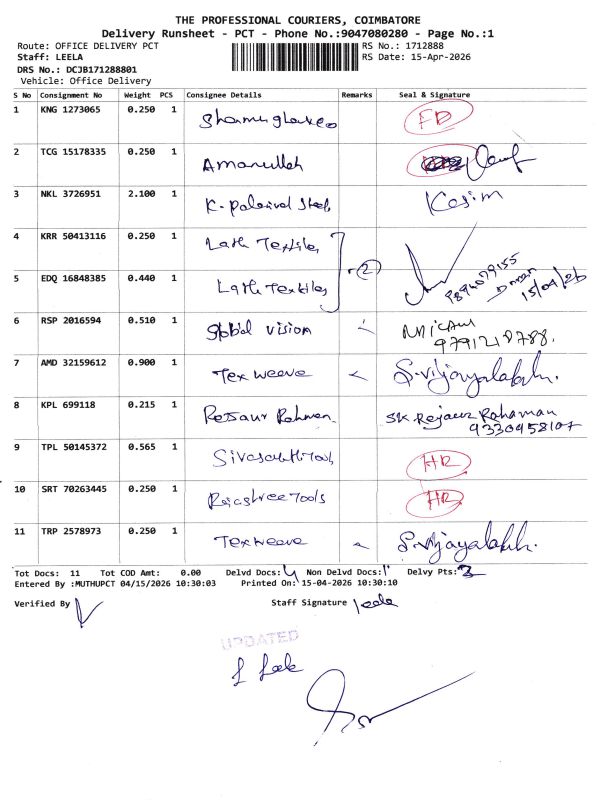 THE PROFESSIONAL COURIERS, COIMBATORE
Delivery Runsheet - PCT - Phone No.:9047080280 - Page No.:1
Route: OFFICE DELIVERY PCT RS No.: 1712888
Staff: LEELA RS Date: 15-Apr-2026
DRS No.: DCJB171288801
Vehicle: Office Delivery
S No Consignment No Weight PCS Consignee Details Remarks Seal & Signature
1 KNG 1273065 0.250 1 FD
2 TCG 15178335 0.250 1 Amanullah
3 NKL 3726951 2.100 1 Kasim
4 KRR 50413116 0.250 1 Lath Textiles
2
5 EDQ 16848385 0.440 1 Lath Textiles 15/04/26
6 RSP 2016594 0.510 1 Global vision
7 AMD 32159612 0.900 1 Tex weave S.Vijayalaksh.
8 KPL 699118 0.215 1 SK. Rejaur Rahaman
9330458107
9 TPL 50145372 0.565 1 HR
10 SRT 70263445 0.250 1 Rajashree Tools HR
11 TRP 2578973 0.250 1 Tex weave S.Vijayalaksh.
Tot Docs: 11 Tot COD Amt: 0.00 Delvd Docs: Non Delvd Docs: Delvy Pts:
Entered By :MUTHUPCT 04/15/2026 10:30:03 Printed On: 15-04-2026 10:30:10
Verified By Staff Signature Leela
UPDATED